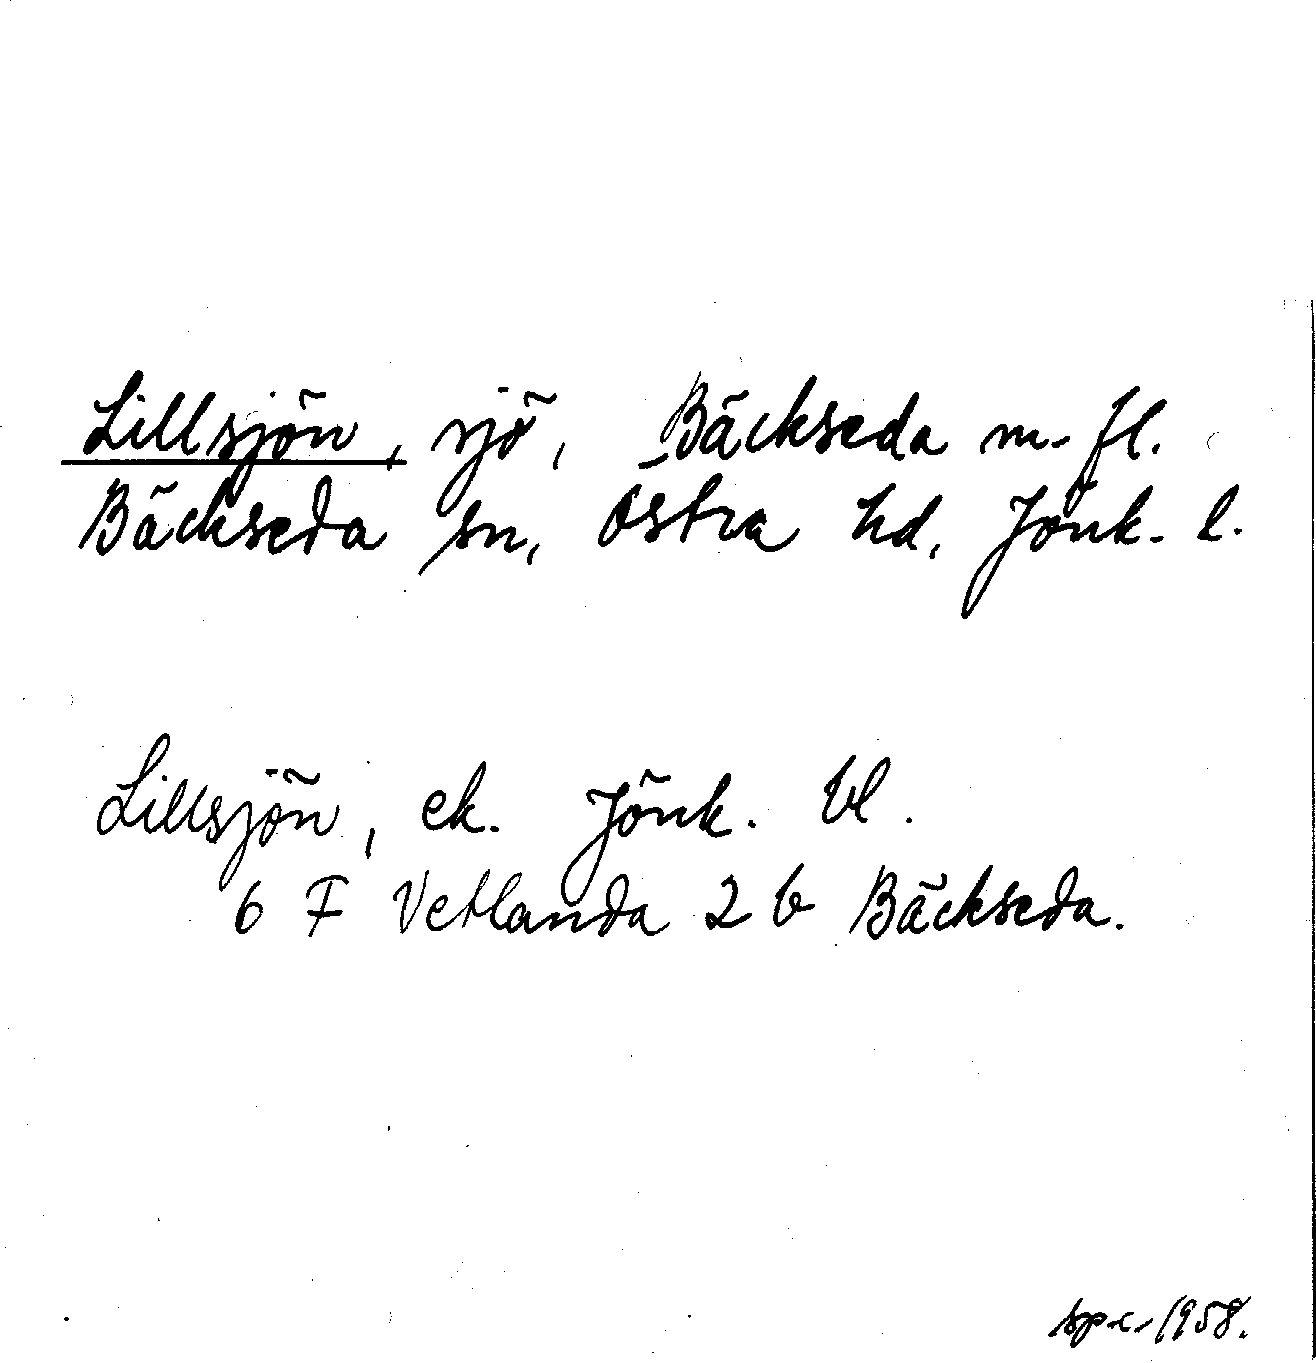 Lillsjön, sjö, Bäckseda m. fl.
Bäckseda sn, Östra hd, Jönk. l.
Lillsjön, ek. Jönk. bl.
6 F Vetlanda 2 b Bäckseda.
1958.